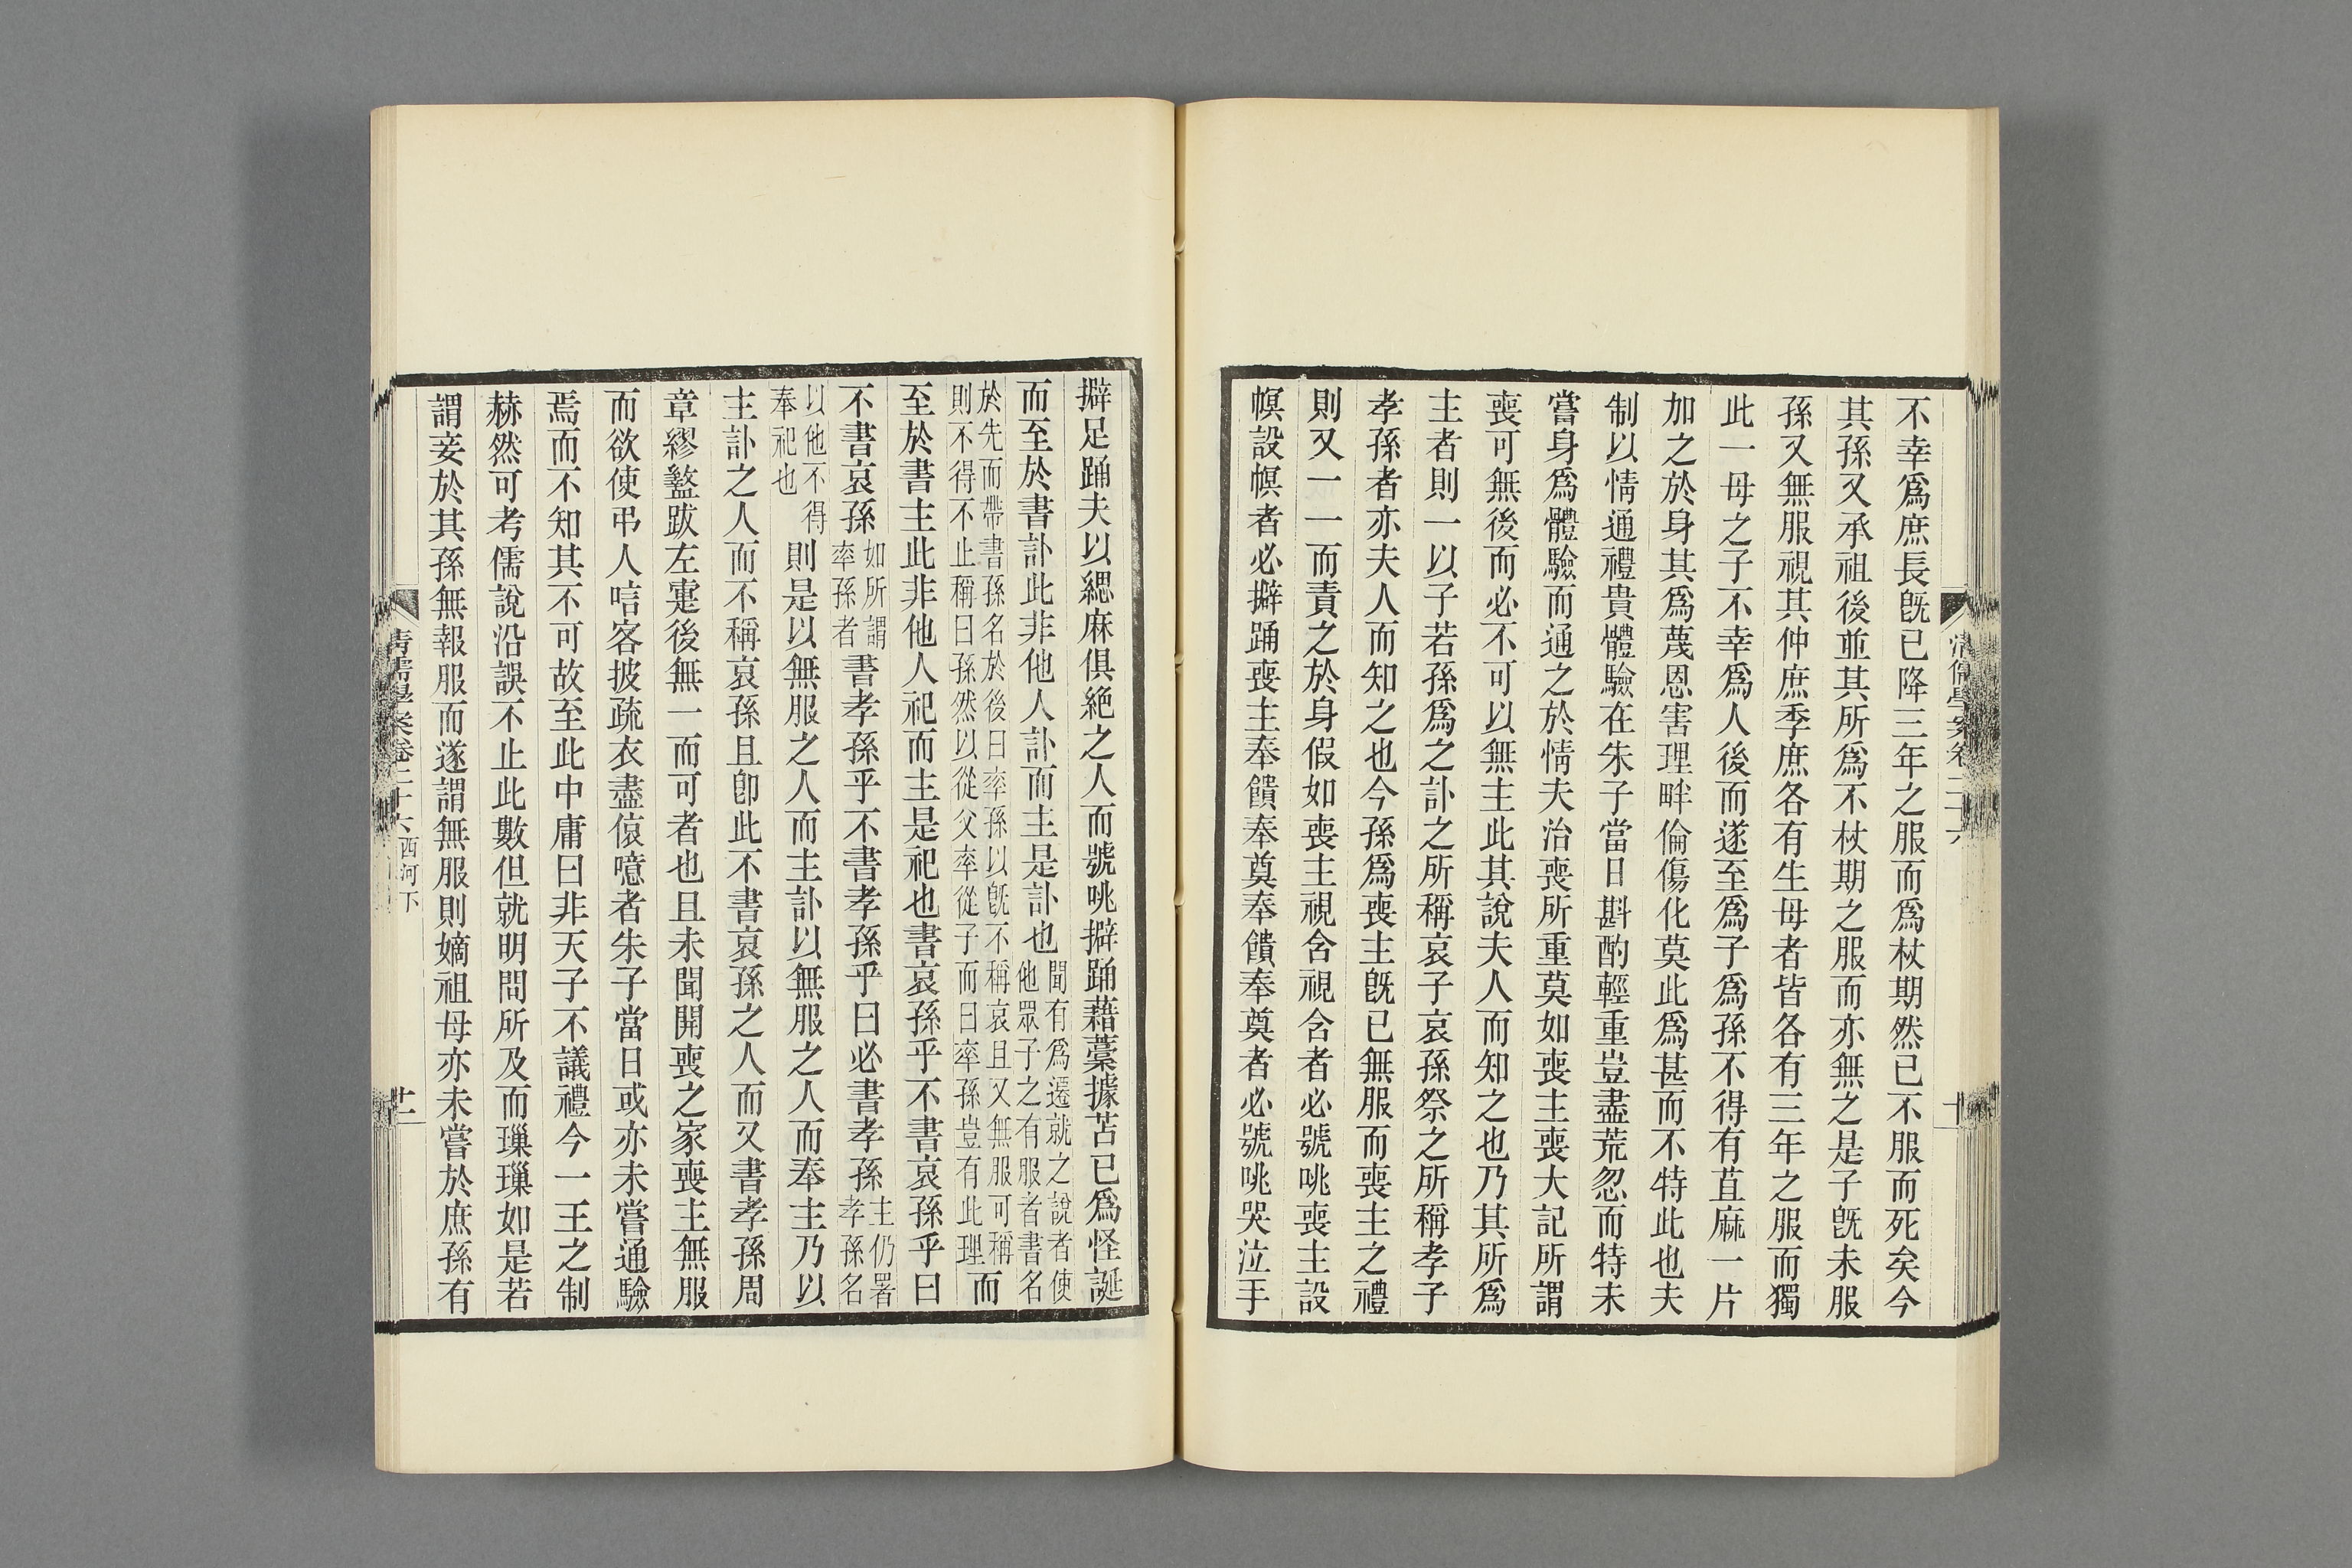 不幸爲庶長旣已降三年之服而爲杖期然已不服而死矣今
其孫又承祖後並其所爲不杖期之服而亦無之是子旣未服
孫又無服視其仲庶季庶各有生母者皆各有三年之服而獨
此一母之子不幸爲人後而遂至爲子爲孫不得有苴麻一片
加之於身其爲蔑恩害理畔倫傷化莫此爲甚而不特此也夫
制以情通禮貴體驗在朱子當日斟酌輕重豈盡荒忽而特未
嘗身爲體驗而通之於情夫治喪所重莫如喪主喪大記所謂
喪可無後而必不可以無主此其說夫人而知之也乃其所爲
主者則一以子若孫爲之訃之所稱哀子哀孫祭之所稱孝子
孝孫者亦夫人而知之也今孫爲喪主旣已無服而喪主之禮
則又一一而責之於身假如喪主視含視含者必號咷喪主設
幎設幎者必擗踊喪主奉饋奉奠奉饋奉奠者必號咷哭泣手
清儒學案卷二十六
擗足踊夫以緦麻俱絶之人而號咷擗踊藉藁據苫已爲怪誕
而至於書訃此非他人訃而主是訃也聞有爲遷就之說者使
他眾子之有服者書名
於先而帶書孫名於後曰率孫以旣不稱哀且又無服可稱
則不得不止稱曰孫然以從父率從子而曰率孫豈有此理而
至於書主此非他人祀而主是祀也書哀孫乎不書哀孫乎曰
不書哀孫如所謂
率孫者書孝孫乎不書孝孫乎曰必書孝孫主仍署
孝孫名
以他不得
奉祀也則是以無服之人而主訃以無服之人而奉主乃以
主訃之人而不稱哀孫且卽此不書哀孫之人而又書孝孫周
章繆盭跋左疐後無一而可者也且未聞開喪之家喪主無服
而欲使弔人唁客披疏衣盡偯噫者朱子當日或亦未嘗通驗
焉而不知其不可故至此中庸曰非天子不議禮今一王之制
赫然可考儒說沿誤不止此數但就明問所及而璅璅如是若
謂妾於其孫無報服而遂謂無服則嫡祖母亦未嘗於庶孫有
清儒學案卷二十六 西河下